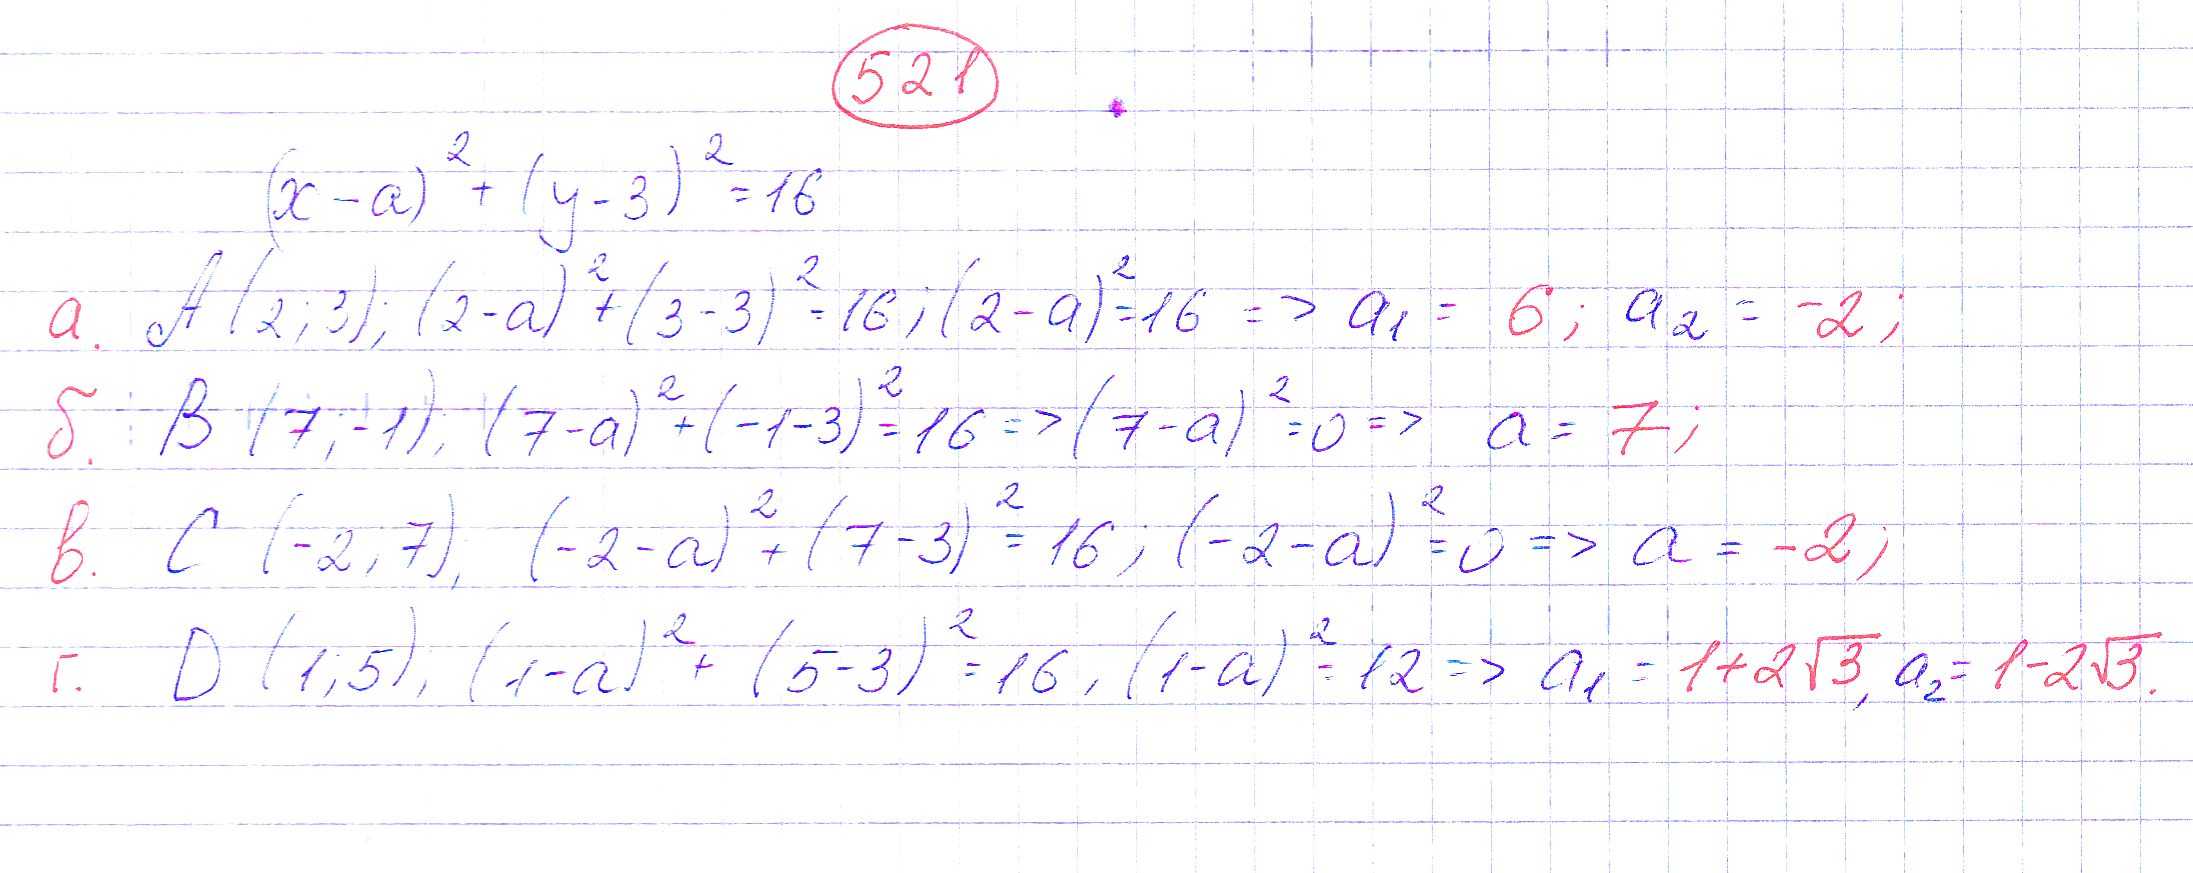 521
(x-a)²+(y-3)²=16
а. A(2;3); (2-a)²+(3-3)²=16; (2-a)²=16 => a₁= 6; a₂= -2;
б. B(7;-1), (7-a)²+(-1-3)²=16 => (7-a)²=0 => a= 7;
в. C(-2;7); (-2-a)²+(7-3)²=16; (-2-a)²=0 => a= -2;
г. D(1;5); (1-a)²+(5-3)²=16, (1-a)²=12 => a₁= 1+2√3, a₂= 1-2√3.